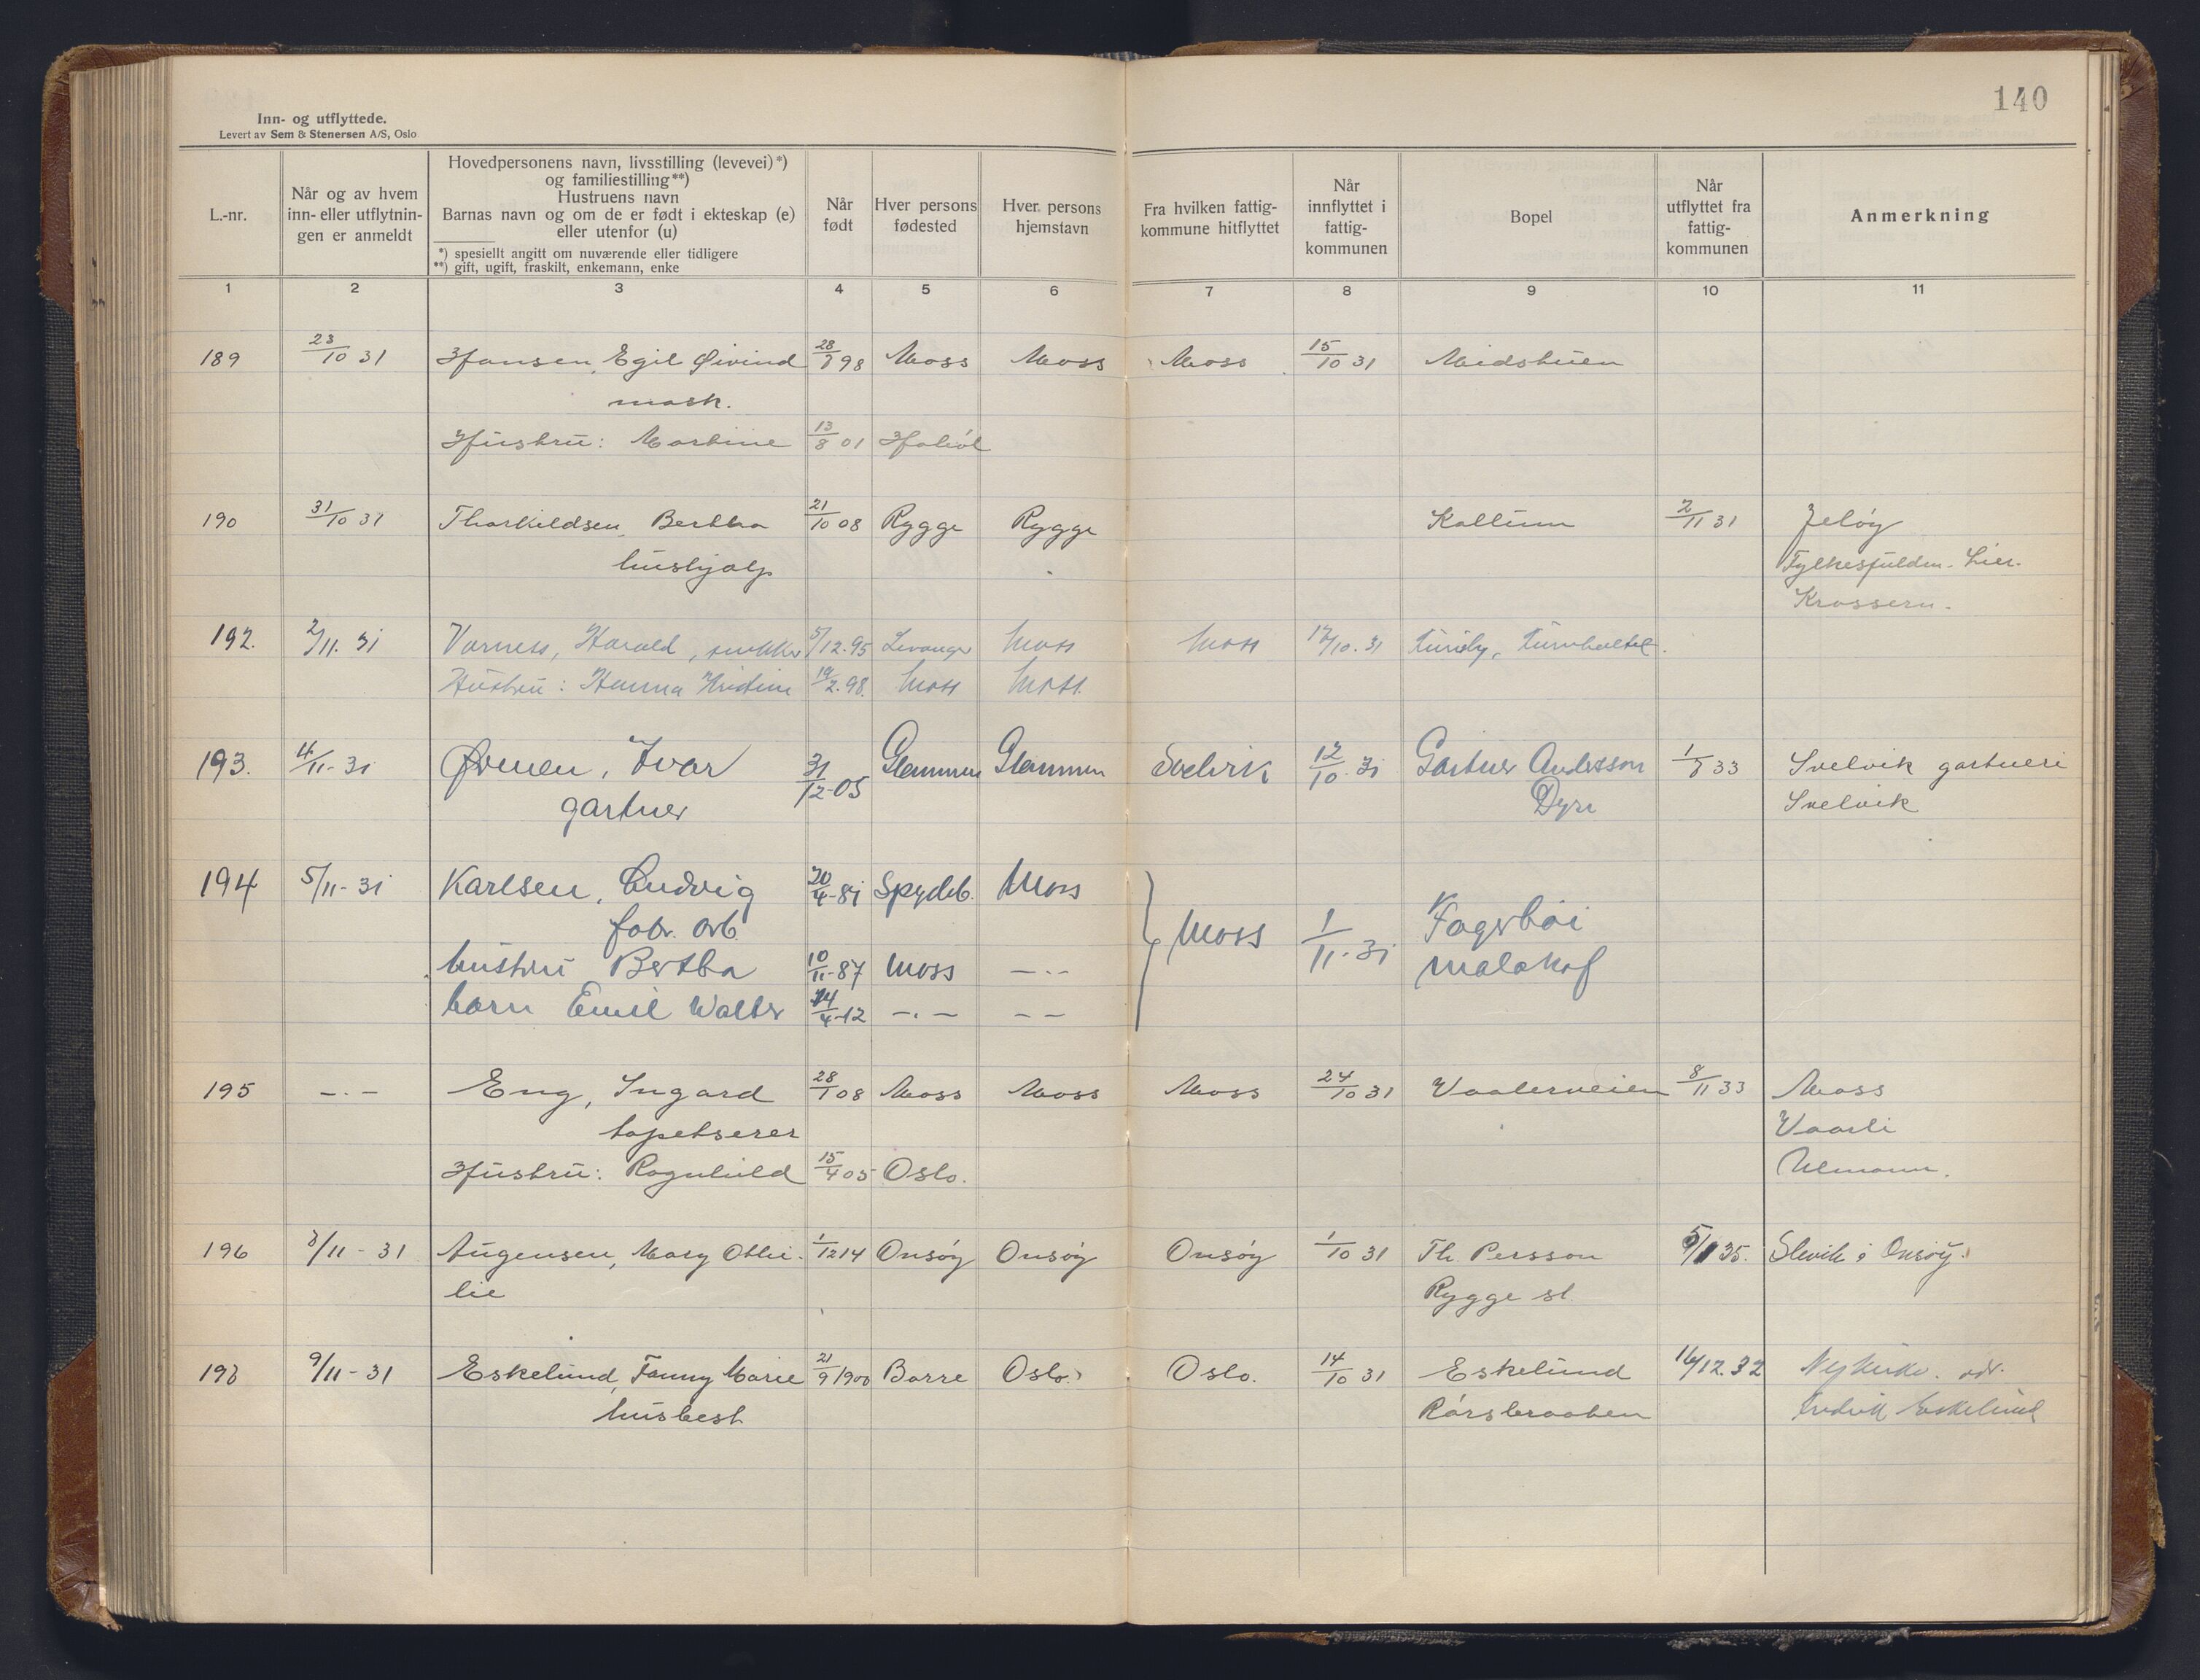 140
Inn- og utflyttede.
Levert av Sem & Stenersen A/S, Oslo
L.-nr.
Når og av hvem inn- eller utflytnin- gen er anmeldt
Hovedpersonens navn, livsstilling (levevei)*)
og familiestilling**)
Hustruens navn
Barnas navn og om de er født i ekteskap (e)
eller utenfor (u)
*) spesiellt angitt om nuværende eller tidligere
**) gift, ugift, fraskilt, enkemann, enke
Når født
Hver persons fødested
Hver persons hjemstavn
Fra hvilken fattig- kommune hitflyttet
Når innflyttet i fattig- kommunen
Bopel
Når utflyttet fra fattig- kommunen
Anmerkning
1 2 3 4 5 6 7 8 9 10 11
189 23/10 31 Hansen, Egil Øivind 28/8 98 Moss Moss Moss 15/10 31 Midskuen
mask.
Hustru: Martine 13/8 01 Hobøl
190 31/10 31 Thorkildsen, Bertha 21/10 08 Rygge Rygge Kallum 2/11 31 Jeløy
hushjalp Fylkesfulldm. Lier-
Krossern.
192. 2/11. 31 Varness, Harald, snekker 5/12.95 Levanger Moss Moss 17/10. 31
Hustru: Hanna Kristine 19/2.98. Moss Moss
193. 4/11-31 Øvrnen, Ivar 31/12-05 Glemmen Glemmen Svelvik 12/10.31 Gartner Andersson 1/8 33 Svelvik gartneri
gartner Dyre Svelvik
194 5/11-31 Karlsen, Ludvig 20/4-81 Spydeb. Moss Moss 1/11.31 Fagerhøi
fabr. arb. malakof
hustru Bertha 10/11-87 Moss —.—
barn Emil Walter 14/4-12 —.— — —
195 —.— Eng, Ingard 28/1 08 Moss Moss Moss 24/10 31 Vaalerveien 8/11 33 Moss
tapetserer Vaarli
Hustru: Ragnhild 15/4 05 Oslo. Ulmann.
196 8/11-31 Augensen, Mary Otti- 1/12 14 Onsøy Onsøy Onsøy 1/10 31 Th. Persson 5/1 35. Slevik i Onsøy.
lie Rygge st
198 9/11-31 Eskelund, Fanny Marie 21/9 1900 Borre Oslo. Oslo. 14/10 31 Eskelund 16/12.32 Nykirke. adr.
husbest Rørsbraaten Fredrik Eskelund